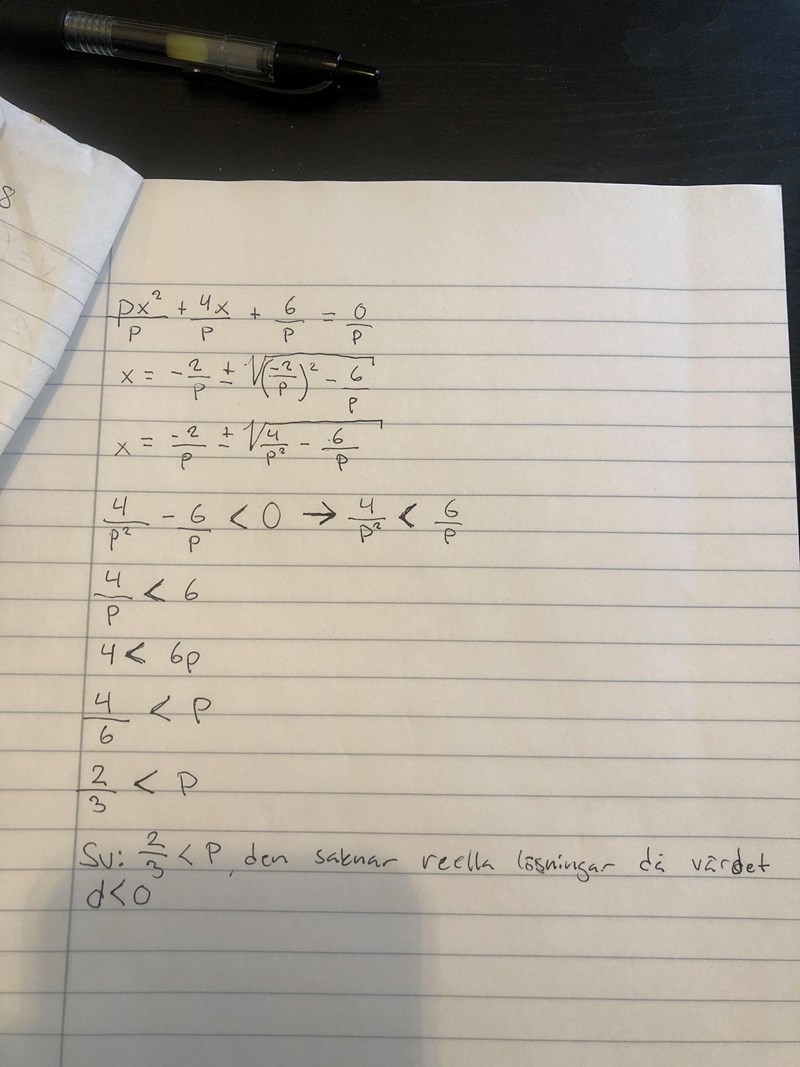 8
px²/p + 4x/p + 6/p = 0/p
x = -2/p ± √((-2/p)² - 6/p)
x = -2/p ± √(4/p² - 6/p)
4/p² - 6/p < 0 → 4/p² < 6/p
4/p < 6
4 < 6p
4/6 < p
2/3 < p
Sv: 2/3 < p, den saknar reella lösningar då värdet
d<0